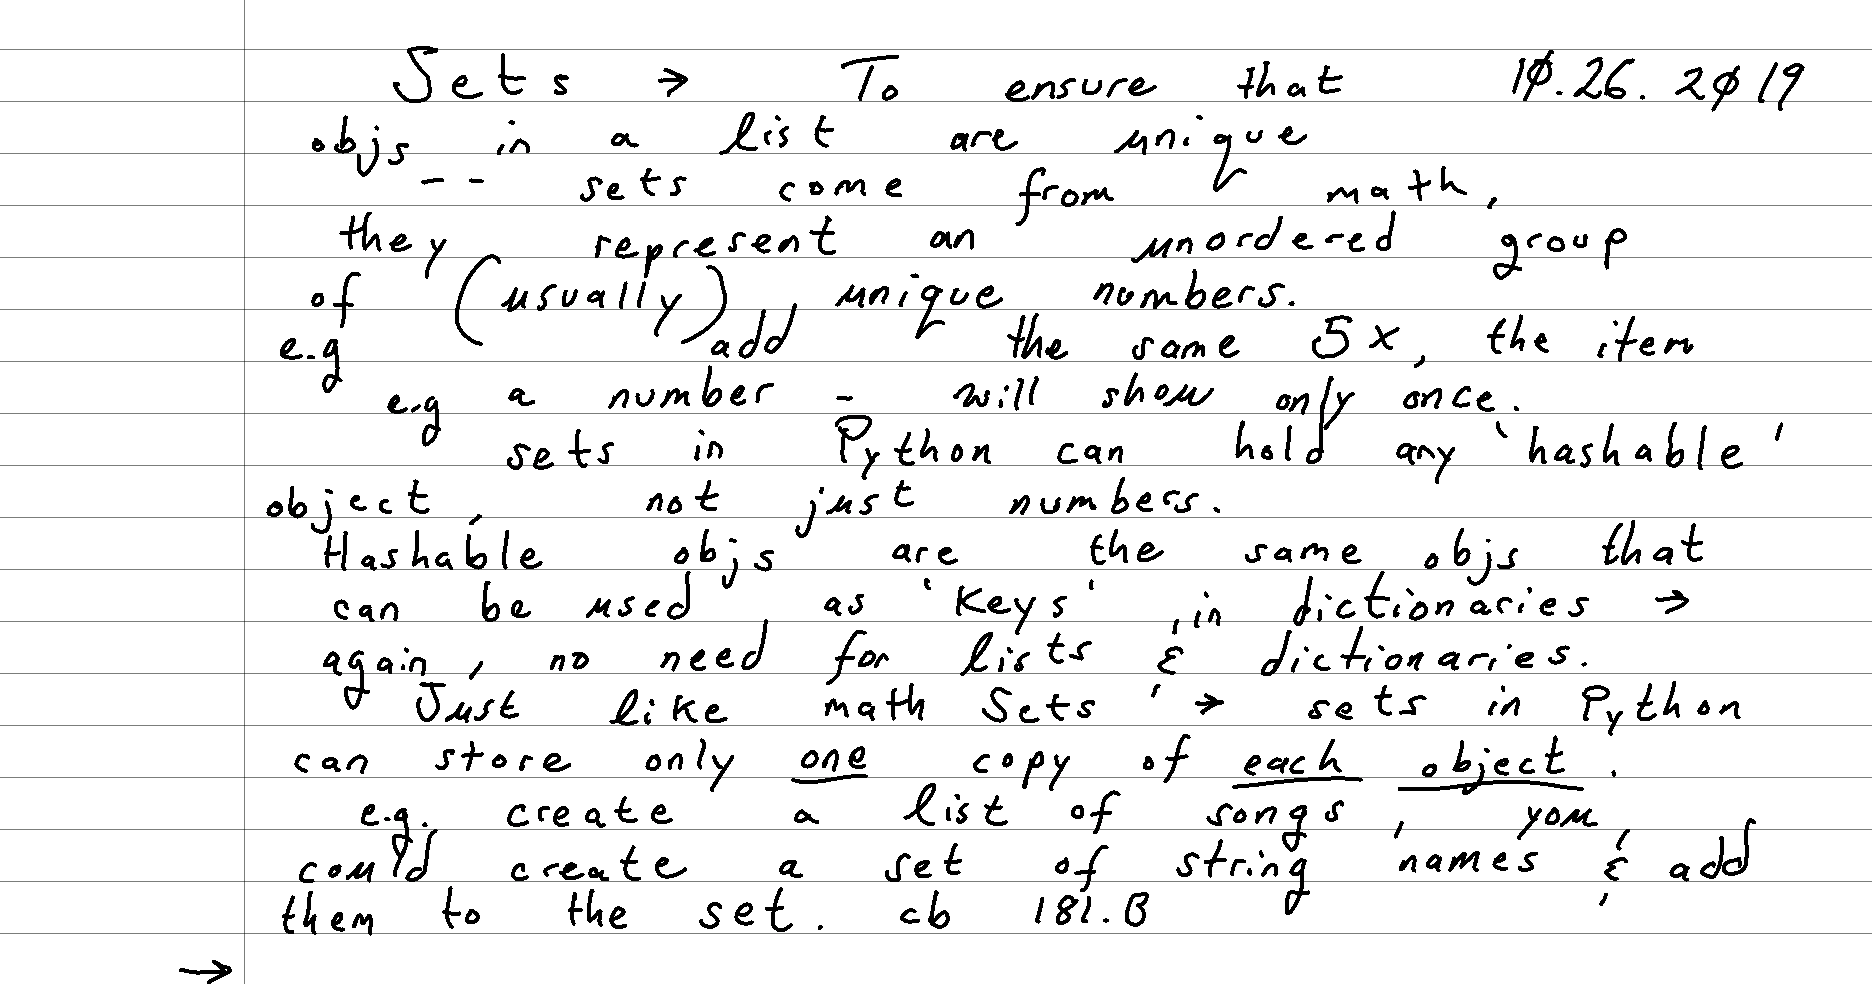 Sets → To ensure that 10.26.2019
objs in a list are unique
-- sets come from math,
they represent an unordered group
of (usually) unique numbers.
e.g add the same 5x, the item
e.g a number - will show only once.
sets in Python can hold any 'hashable'
object, not just numbers.
Hashable objs are the same objs that
can be used as 'Keys' in dictionaries →
again, no need for lists & dictionaries.
Just like math Sets → sets in Python
can store only one copy of each object.
e.g. create a list of songs, you
could create a set of string names & add
them to the set. cb 181.B
→